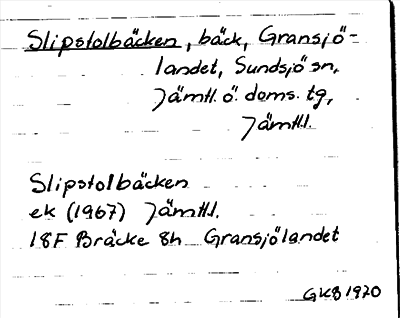 Slipstolbäcken, bäck, Gransjö-
landet, Sundsjö sn,
Jämtl. ö. doms. tg,
Jämtl.
Slipstolbäcken
ek (1967) Jämtl.
18F Bräcke 8h Gransjölandet
GKB 1970